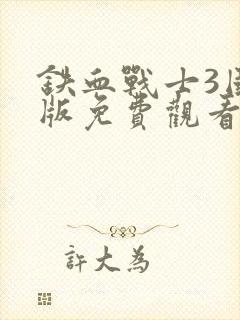 鉄血戰士3
版免費觀看
許大為